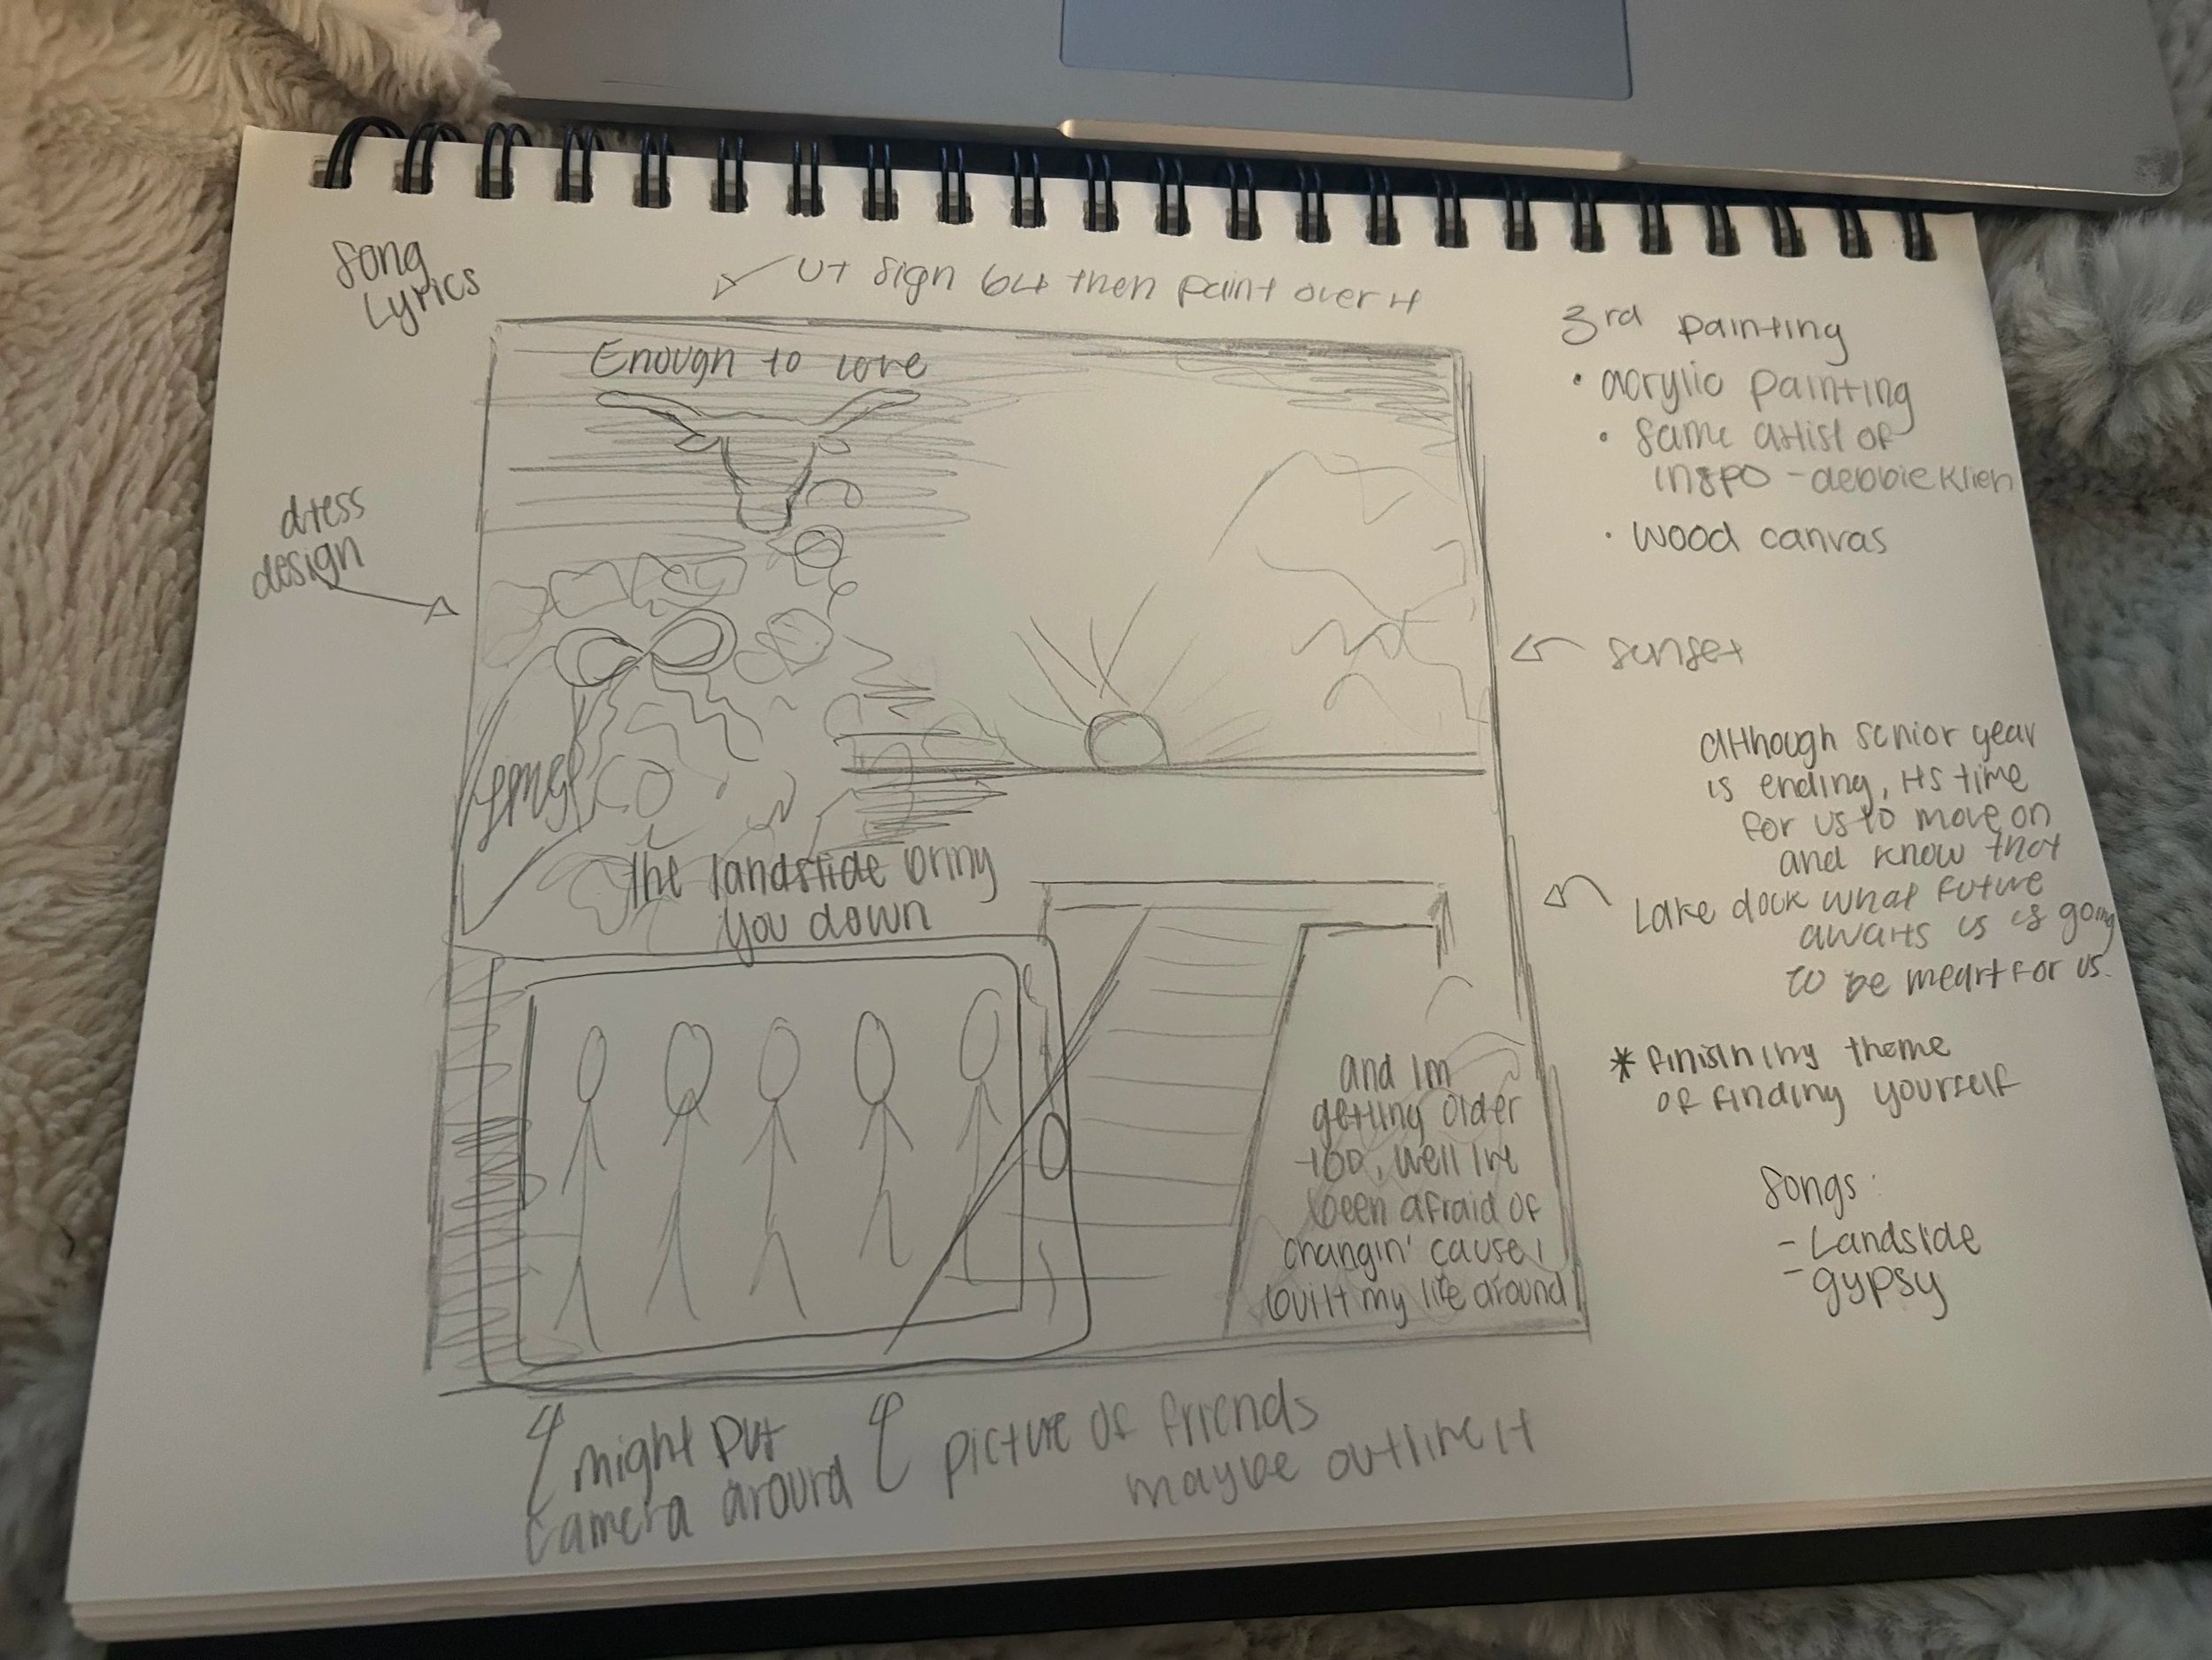 Song
Lyrics
UT sign but then paint over it
Enough to love
dress
design
3rd painting
• acrylic painting
• same artist of
inspo - debbie Klien
• wood canvas
sunset
although senior year
is ending, its time
for us to move on
and know that
what future
awaits us is going
to be meant for us.
Lake dock
* finishing theme
of finding yourself
Songs:
- Landslide
- gypsy
the landslide bring
you down
and Im
getting older
too, well Ive
been afraid of
changin' cause I
built my life around
might put
camera around
picture of friends
maybe outline it